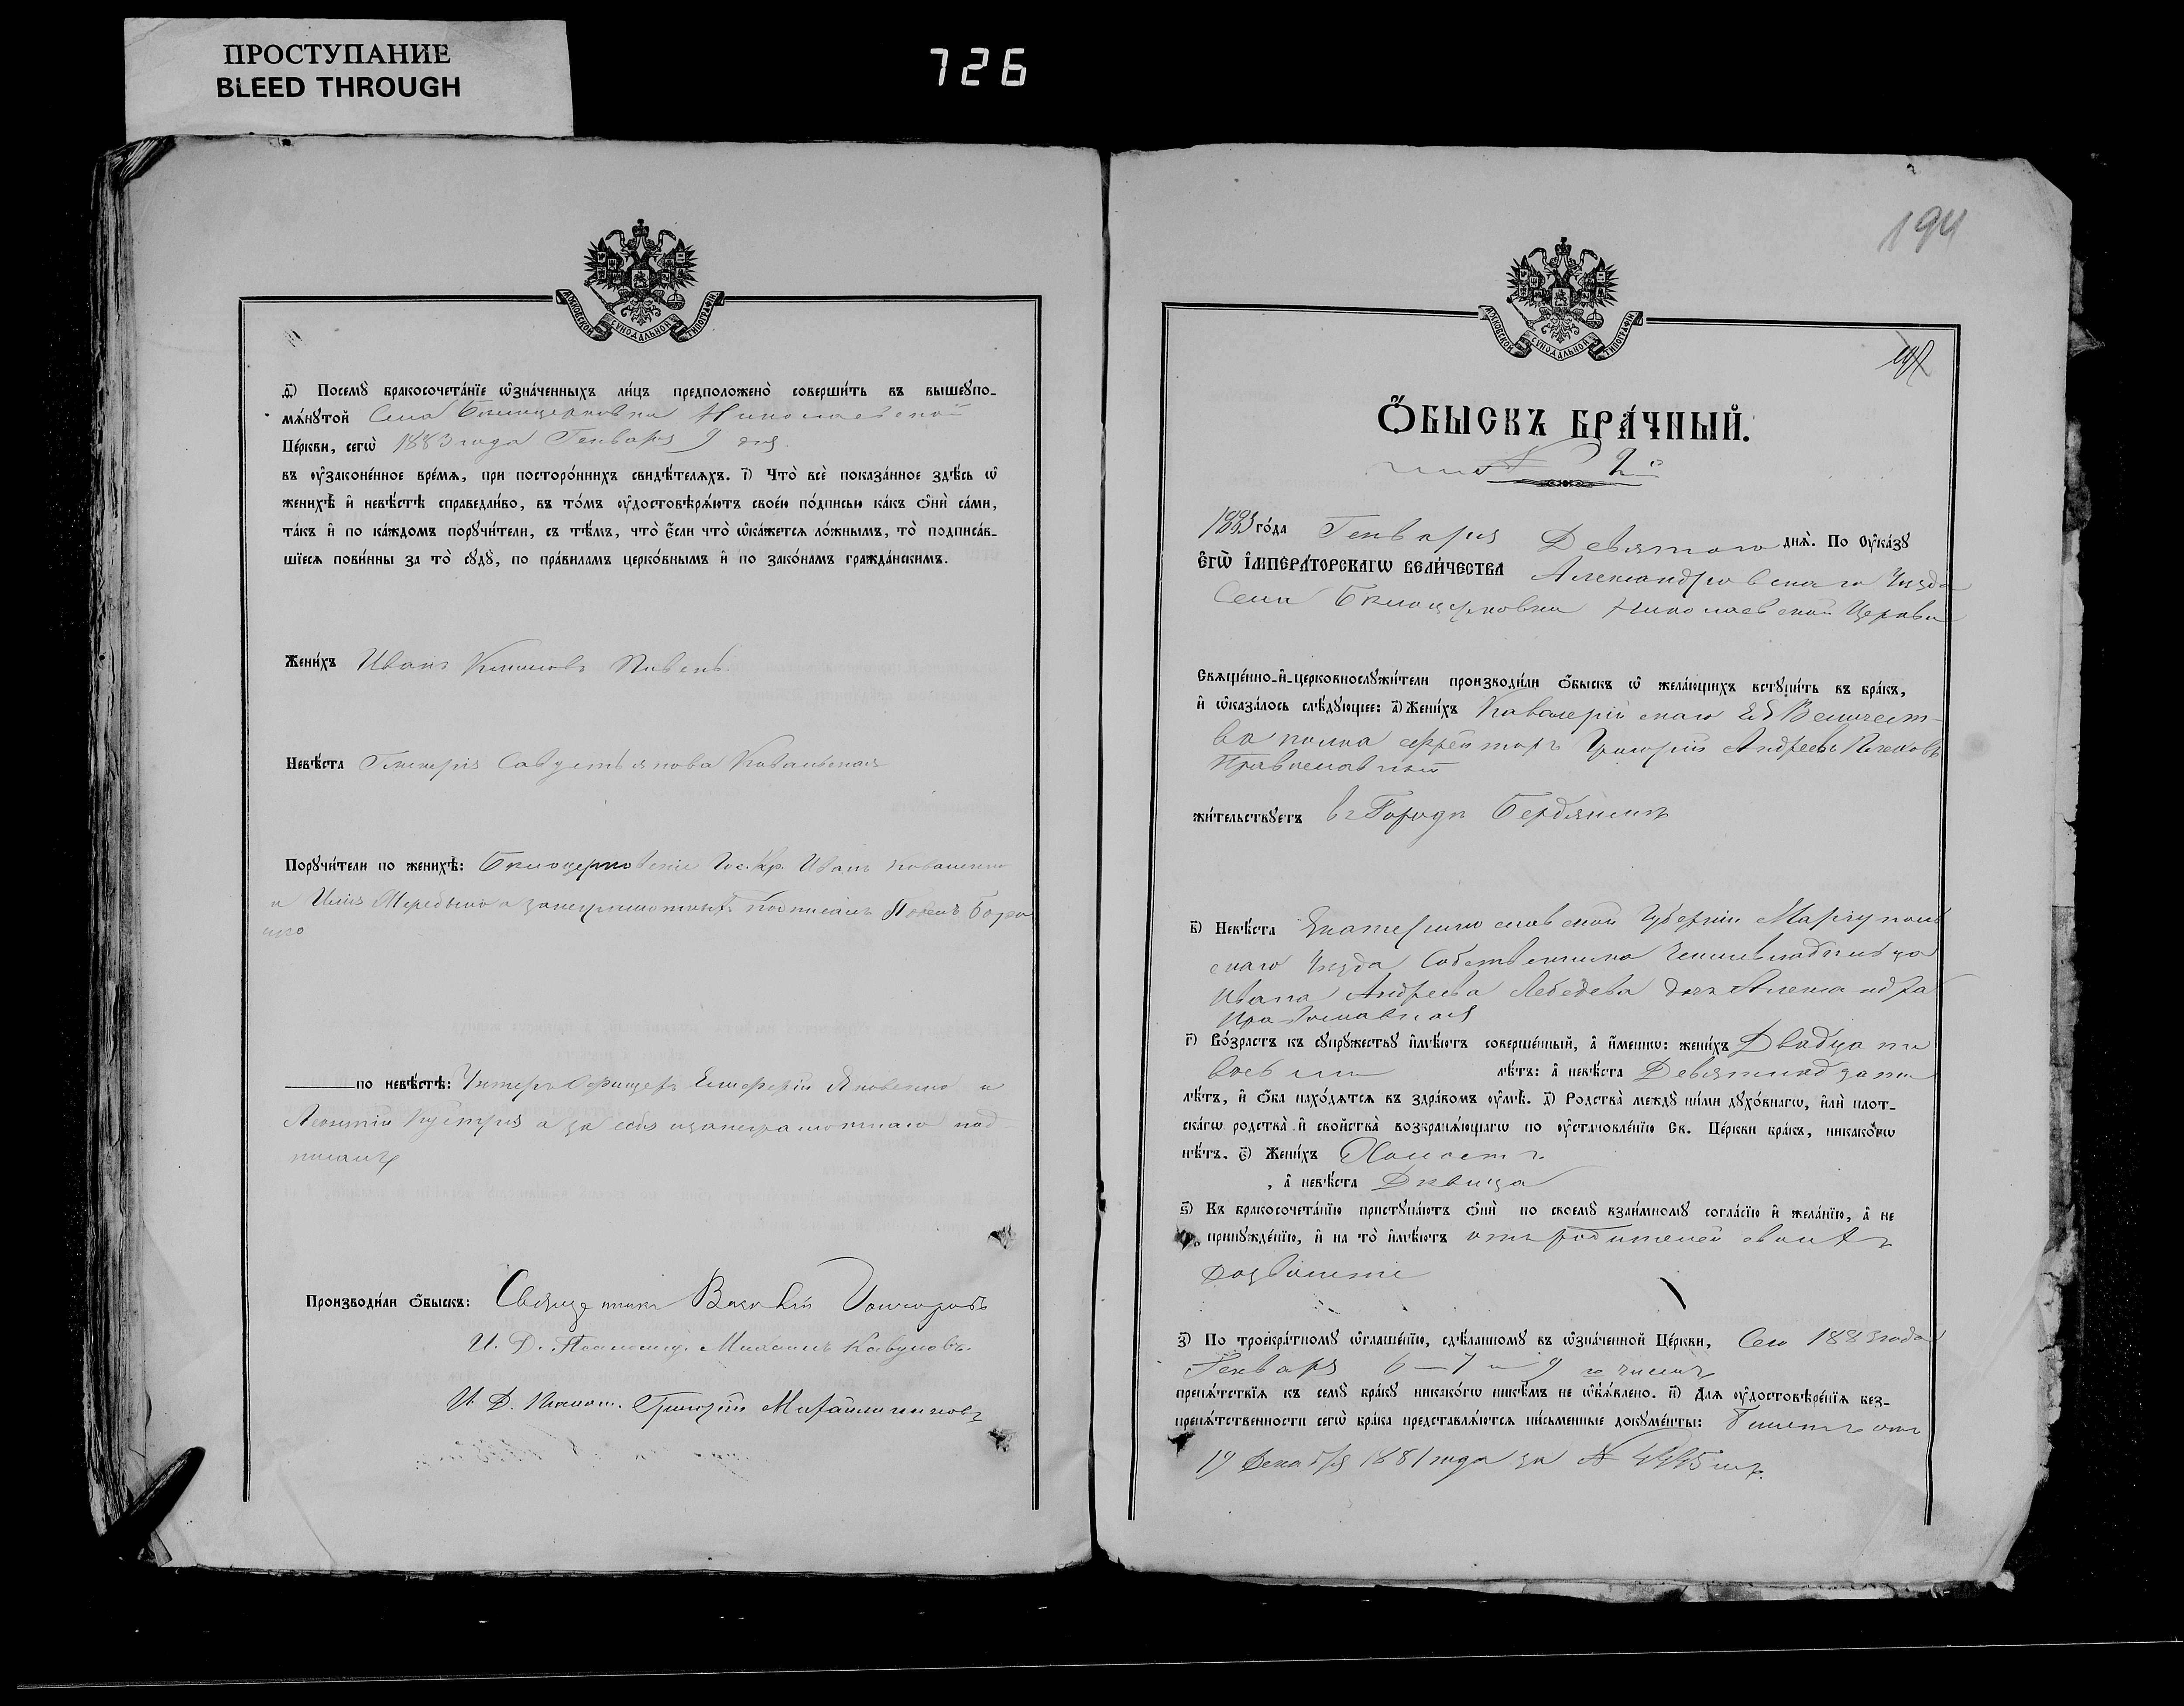 ПРОСТУПАНИЕ
BLEED THROUGH
726
МОСКОВСКОЙ СУНОДАЛЬНОЙ ТИПОГРАФІИ
д҃і) Посемꙋ̀ бракосочета́нїе ѡ҆зна́ченныхъ ли́цъ предположено̀ соверши́ть въ вышеꙋпо-
мѧ́нꙋтой Села Бѣлоцерковки Николаевской
Це́ркви, сегѡ̀ 1883 года Генваря 9 дня.
въ ᲂу҆законе́нное вре́мѧ, при посторо́ннихъ свидѣ́телѧхъ. і҃) Что̀ всѐ показа́нное здѣ́сь ѡ҆
женихѣ̀ и҆ невѣ́стѣ справедли́во, въ то́мъ ᲂу҆достовѣрѧ́ютъ свое́ю по́дписью ка́къ ѻ҆нѝ са́ми,
та́къ и҆ по ка́ждомъ порꙋчи́тели, съ тѣ́мъ, что̀ є҆́сли что̀ ѡ҆ка́жетсѧ ло́жнымъ, то̀ подписа́в-
шїесѧ пови́нны за то̀ сꙋдꙋ̀, по пра́виламъ церко́внымъ и҆ по зако́намъ гражда́нскимъ.
Жени́хъ Иванъ Климовъ Пивень.
Невѣ́ста Гликерія Савустьянова Ковальская
Порꙋчи́тели по женихѣ̀: Бѣлоцерковскіе Гос. Кр. Иванъ Коваленко
и Илія а за неграмотныхъ подписалъ
по невѣ́стѣ: Унтеръ Офицеръ Елеферій Яковенко и
Леонтій а за себя и за неграмотнаго под-
писалъ
Производи́ли ѻ҆́быскъ: Священникъ Василій Гончаровъ
И. Д. Псаломщ. Михаилъ Кавуновъ.
И. Д. Псалом. Григорій Михайличенковъ
194
МОСКОВСКОЙ СУНОДАЛЬНОЙ ТИПОГРАФІИ
Ѻ҆́БЫСКЪ БРА́ЧНЫЙ.
№ 2й
1883 го́да Генваря Девятого днѧ̀. По ᲂу҆ка́зꙋ
Є҆ГѠ̀ И҆МПЕРА́ТОРСКАГѠ ВЕЛИ́ЧЕСТВА Александровскаго Уѣзда
Села Бѣлоцерковки Николаевской Церкви
Свѧще́нно-и҆-церковнослꙋжи́тели производи́ли ѻ҆́быскъ ѡ҆ жела́ющихъ встꙋпи́ть въ бра́къ,
и҆ ѡ҆каза́лось слѣ́дꙋющее: а҃) Жени́хъ Кавалерійскаго Ея Величест-
ва полка ефрейторъ Григорій Андреевъ
Православный
жи́тельствꙋетъ въ Городѣ Бердянскѣ
в҃) Невѣ́ста Екатеринославской Губерніи Маріуполь
скаго Уѣзда Собственника Землевладѣльца
Ивана Андреева Лебедева дочь Александра
Православная
г҃) Во́зрастъ къ сꙋпрꙋ́жествꙋ и҆мѣ́ютъ соверше́нный, а҆ и҆́меннѡ: жени́хъ Двадцати
восьми лѣ́тъ: а҆ невѣ́ста Девятнадцати
лѣ́тъ, и҆ ѻ҆́ба нахо́дѧтсѧ въ здра́вомъ ᲂу҆мѣ̀. д҃) Родства̀ междꙋ̀ ни́ми дꙋхо́внагѡ, и҆лѝ плот-
ска́гѡ родства̀ и҆ сво́йства̀ возбранѧ́ющагѡ по ᲂу҆становле́нїю Св. Це́ркви бра́къ, никако́гѡ
нѣ́тъ. є҃) Жени́хъ Холостъ
, а҆ невѣ́ста Дѣвица
ѕ҃) Къ бракосочета́нїю пристꙋпа́ютъ ѻ҆нѝ по своемꙋ̀ взаи́мномꙋ согла́сїю и҆ жела́нїю, а҆ не
принꙋжде́нїю, и҆ на то̀ и҆мѣ́ютъ отъ родителей своихъ
дозволеніе
з҃) По троекра́тномꙋ ѡ҆глаше́нїю, сдѣ́ланномꙋ въ ѡ҆зна́ченной Це́ркви, Сего 1883 года
Генваря 6 – 7 и 9 го числъ
препѧ́тствїѧ къ семꙋ̀ бра́кꙋ никако́гѡ никѣ́мъ не ѡ҆б̾ѧ́влено. и҃) Длѧ ᲂу҆достовѣре́нїѧ без-
препѧ́тственности сегѡ̀ бра́ка представлѧ́ютсѧ пи́сьменные докꙋме́нты: Билетъ отъ
19 Декабря 1881 года за № 4445 мъ.